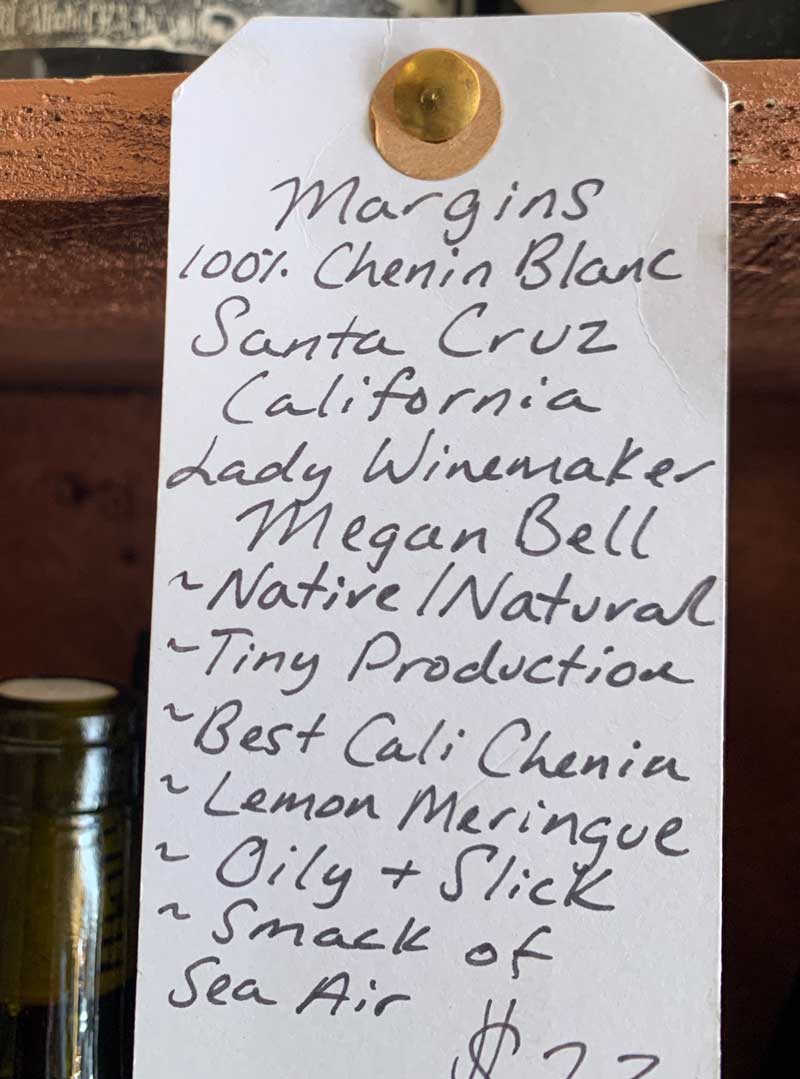 Margins
100% Chenin Blanc
Santa Cruz
California
Lady Winemaker
Megan Bell
~Native/Natural
~Tiny Production
~Best Cali Chenin
~Lemon Meringue
~Oily + Slick
~Smack of
Sea Air
$